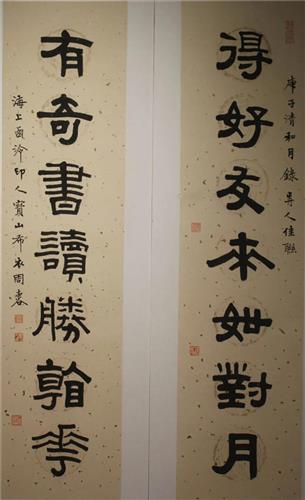 庚子清和月錄人佳聯
得好友来如對月
有奇書讀勝看花
海上西泠印人寶山布衣周